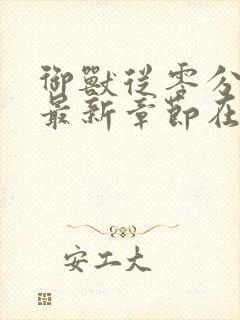 御獸從零分
最新章節在
安工大